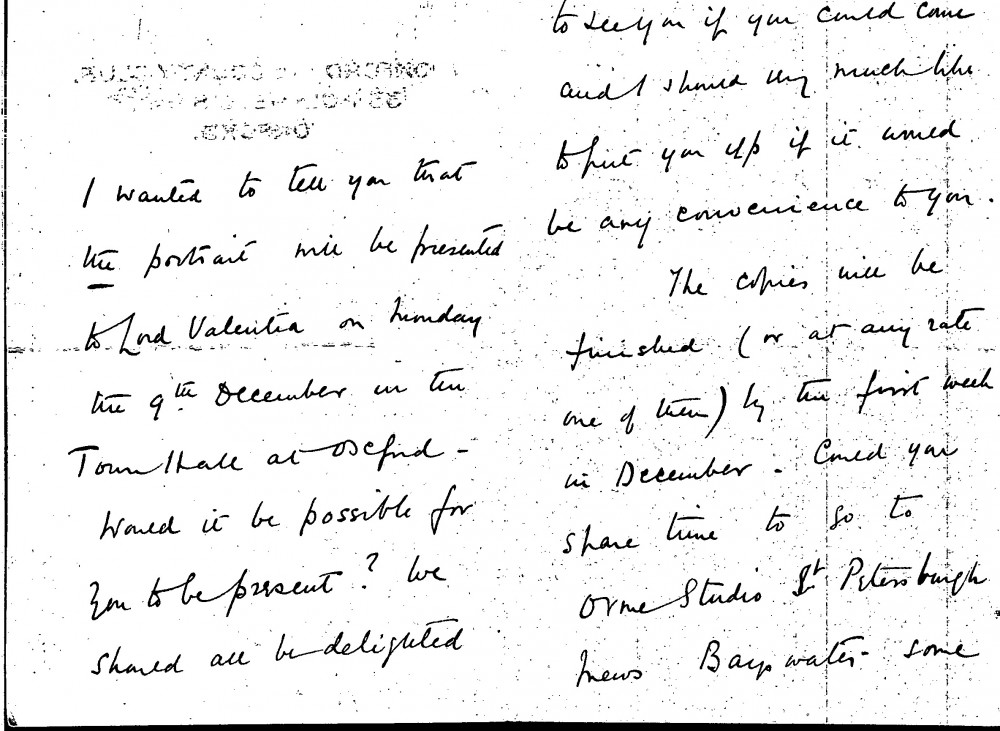 I wanted to tell you that
the portrait will be presented
to Lord Valentia on Monday
the 9th December in the
Town Hall at Oxford -
Would it be possible for
you to be present? We
should all be delighted
to see you if you could come
and I should very much like
to put you up if it would
be any convenience to you.
The copies will be
finished (or at any rate
one of them) by the first week
in December - Could you
spare time to go to
Orme Studio St Petersburgh
Mews Bayswater - some